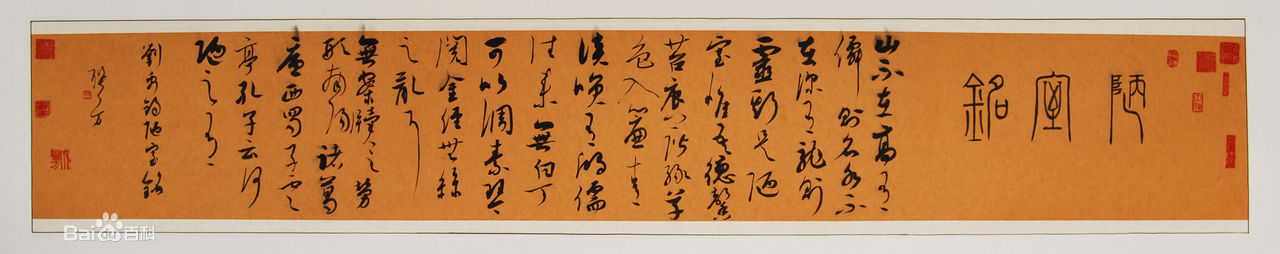 陋室銘
山不在高有
僊則名水不
在深有龍則
靈斯是陋
室惟吾德馨
苔痕上階綠草
色入簾青
談笑有鴻儒
往來無白丁
可以調素琴
閱金經無絲
之亂耳
無案牘之勞
形南陽諸葛
廬西蜀子雲
亭孔子云何
陋之有
劉禹錫陋室銘
Bai百科